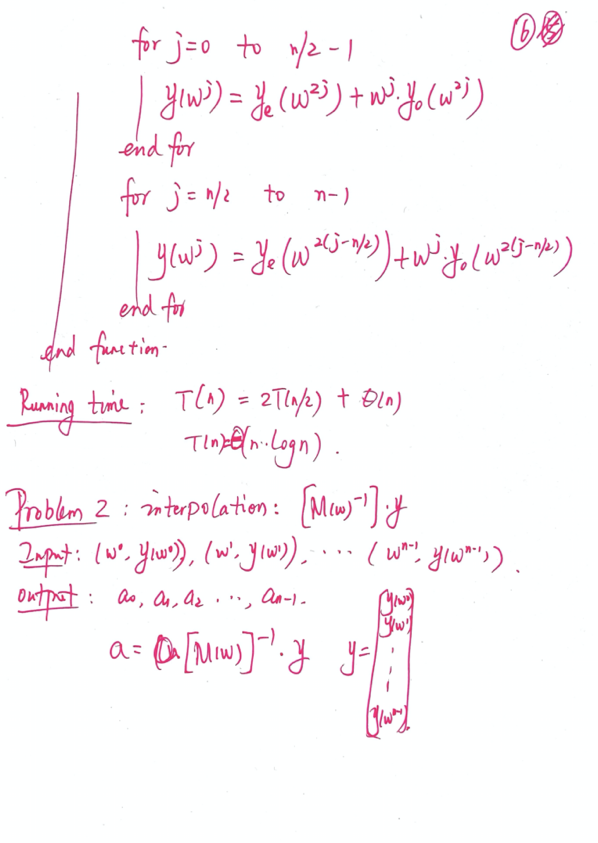 6
for j=0 to n/2-1
y(w^j) = y_e(w^{2j}) + w^j·y_o(w^{2j})
end for
for j=n/2 to n-1
y(w^j) = y_e(w^{2(j-n/2)}) + w^j·y_o(w^{2(j-n/2)})
end for
end function.
Running time: T(n) = 2T(n/2) + Θ(n)
T(n)=Θ(n·logn).
Problem 2: interpolation: [M(w)^{-1}]·y
Input: (w^0, y(w^0)), (w^1, y(w^1)), ···· (w^{n-1}, y(w^{n-1})).
Output: a_0, a_1, a_2 ···, a_{n-1}.
a = [M(w)]^{-1}·y y = [y(w^0)
y(w^1)
⋮
y(w^{n-1})]